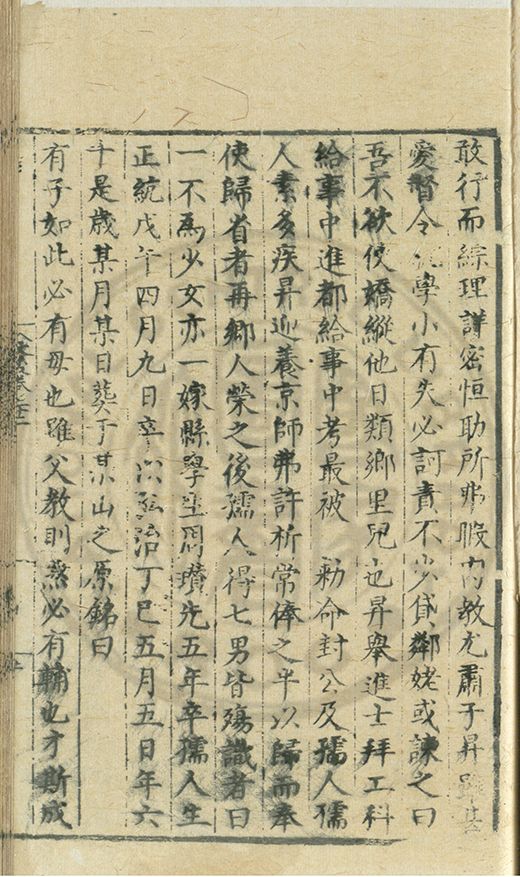 敢行而綜理詳密恒助所弗暇內教尤肅子昇雖甚
愛督令從學小有失必訶責不少貸鄰姥或諫之曰
吾不欲使嬌縱他日類鄉里兒也昇舉進士拜工科
給事中進都給事中考最被 勅命封公及孺人孺
人素多疾昇迎養京師弗許析常俸之半以歸而奉
使歸省者再鄉人榮之後孺人得七男皆殤識者曰
一不為少女亦一嫁縣學生周瓚先五年卒孺人生
正統戊午四月九日卒以弘治丁巳五月五日年六
十是歲某月某日葬于某山之原銘曰
有子如此必有母也雖父教則然必有輔也才斯成